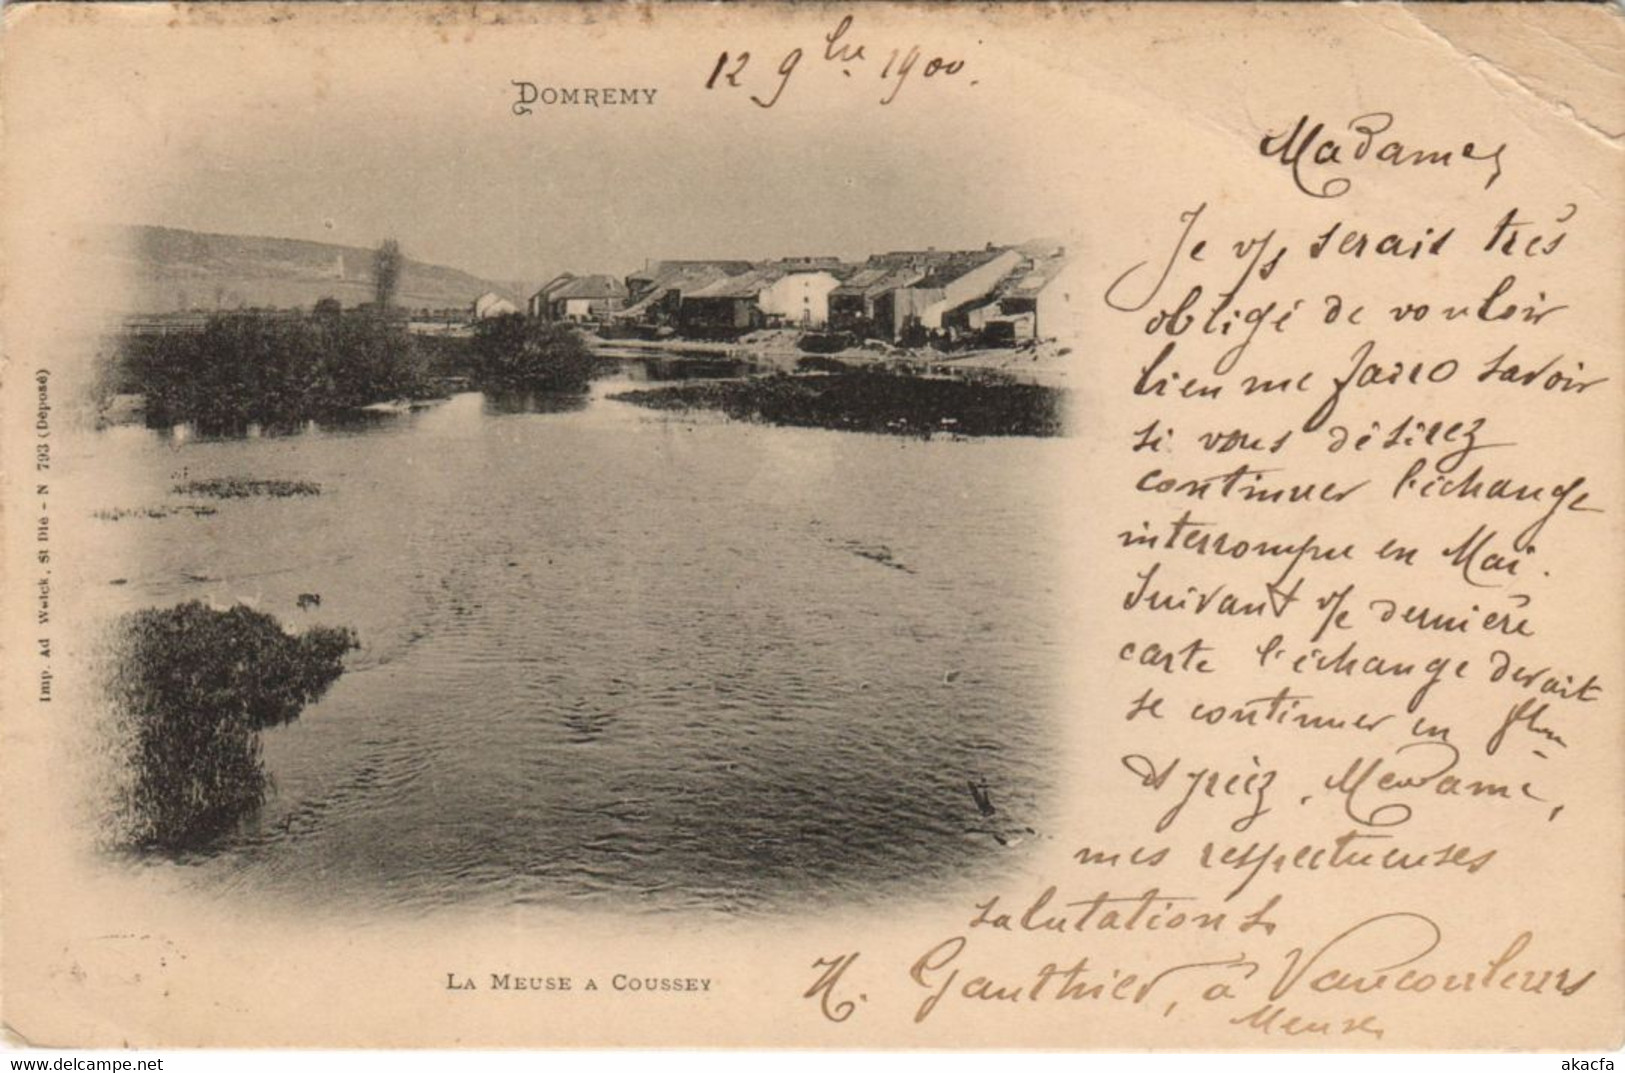 12 9bre 1900.
DOMREMY
Madame,
Je v/s serais très
obligé de vouloir
bien me faire savoir
si vous désirez
continuer l'échange
interrompu en Mai.
Suivant v/e dernière
carte l'échange devait
se continuer en
Agréez, Madame,
mes respectueuses
salutations.
H. Gauthier, à Vaucouleurs
Meuse
LA MEUSE A COUSSEY
Imp. Ad Weick, St Dié - N 793 (Déposé)
delcampe.net
akacfa